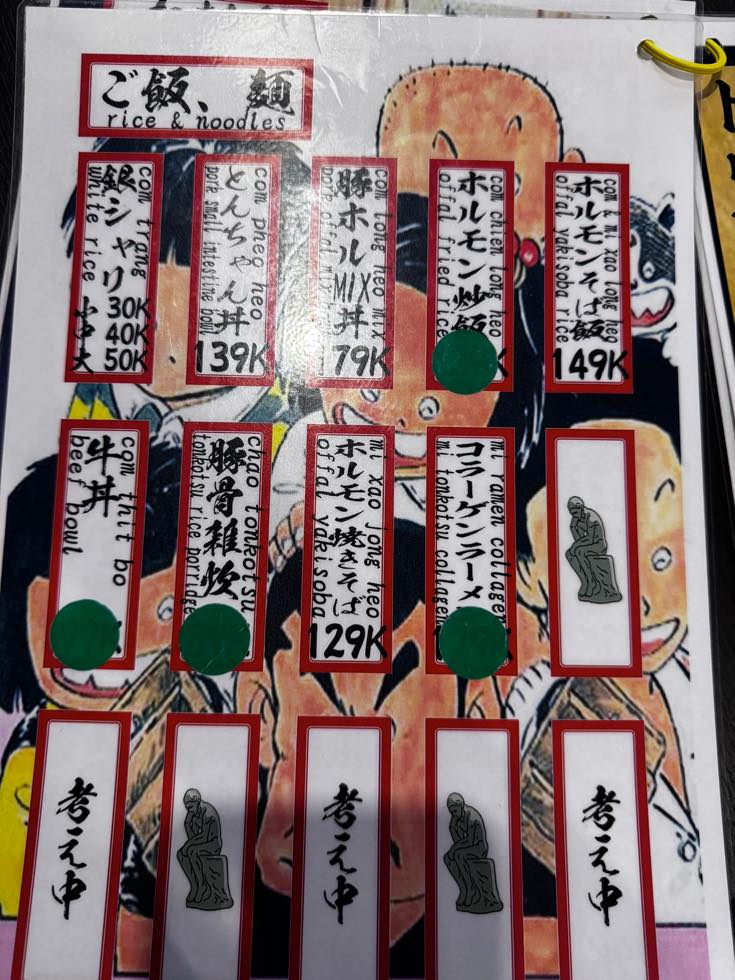 ご飯、麺
rice & noodles
com trang
銀シャリ
white rice
小 30K
中 40K
大 50K
com pheo heo
とんちゃん丼
pork small intestine bowl
139K
com long heo mix
豚ホルMIX丼
pork offal mix
179K
com chien long heo
ホルモン炒飯
offal fried rice
com & mi xao long heo
ホルモンそば飯
offal yakisoba rice
149K
com thit bo
牛丼
beef bowl
chao tonkotsu
豚骨雑炊
tonkotsu rice porridge
mi xao long heo
ホルモン焼きそば
offal yakisoba
129K
mi ramen collagen
コラーゲンラーメン
mi tonkotsu collagen
考え中
考え中
考え中